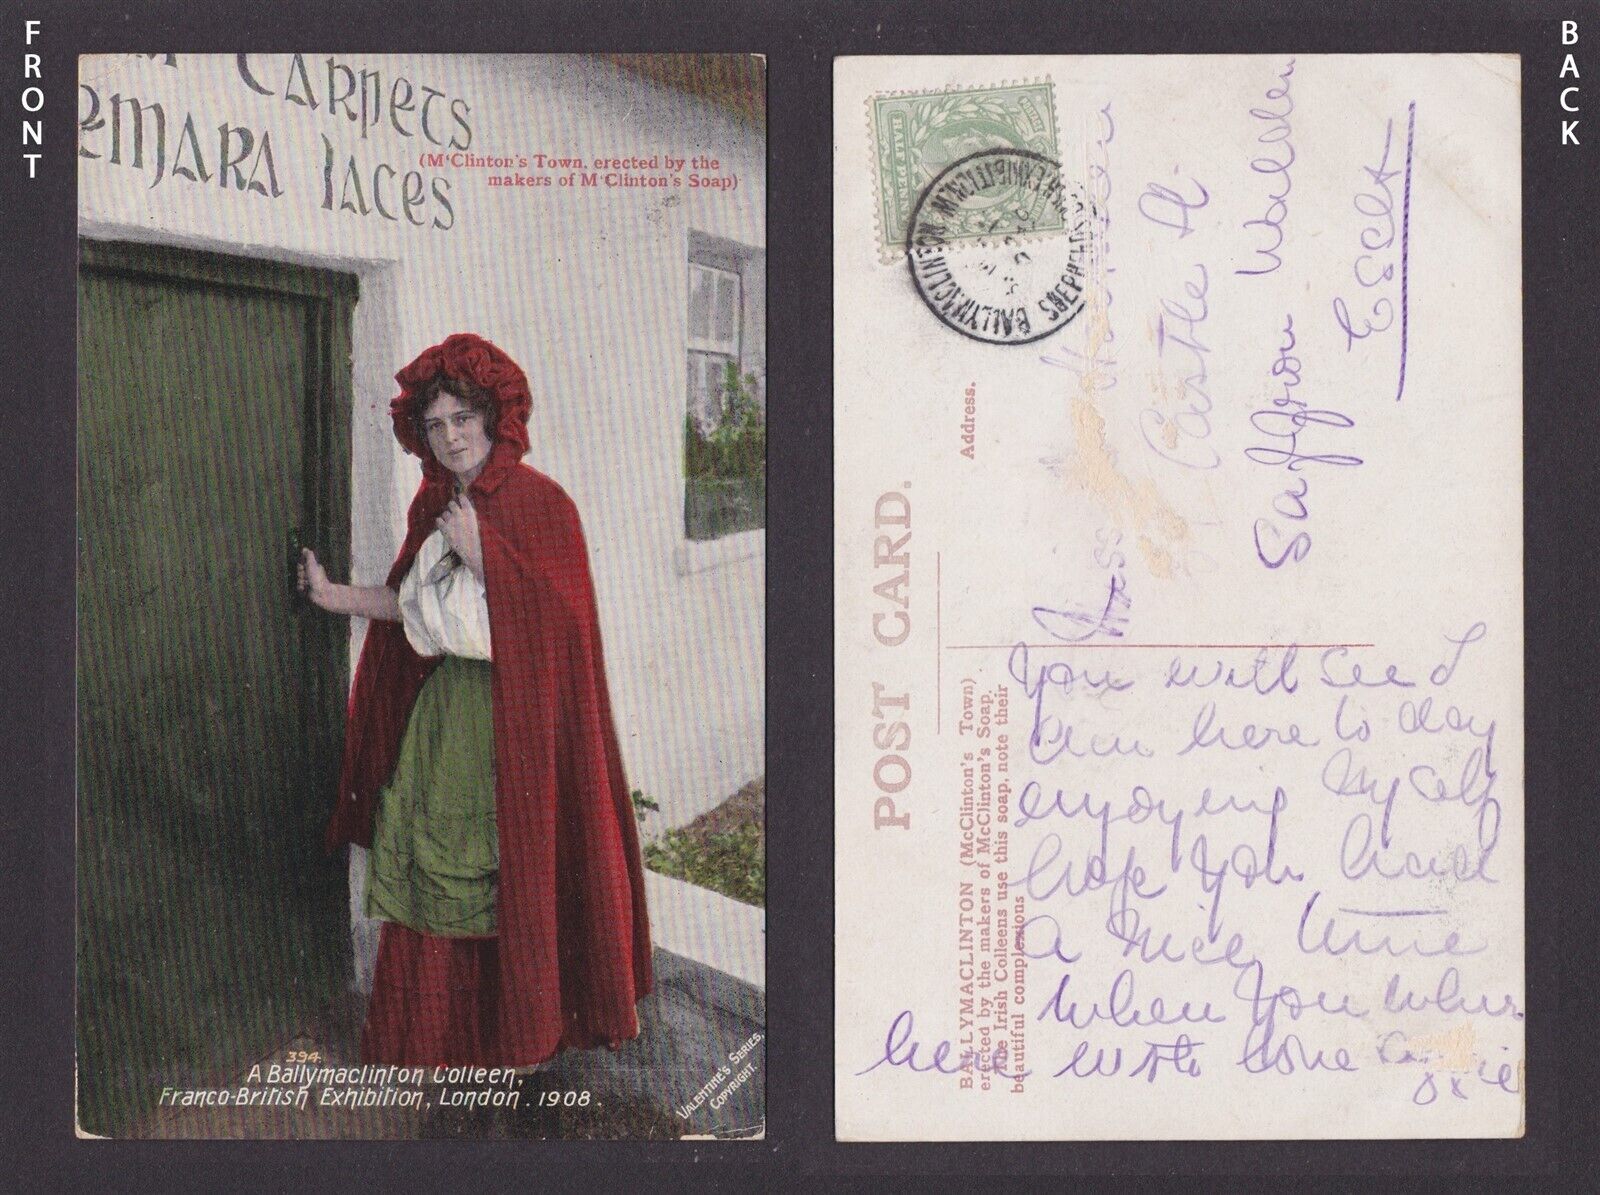 FRONT
CARPETS
EMARA LACES
(M'Clinton's Town, erected by the
makers of M'Clinton's Soap)
394.
A Ballymaclinton Colleen,
Franco-British Exhibition, London. 1908.
VALENTINE'S SERIES,
COPYRIGHT.
BACK
HALF PENNY
BALLYMACLINTON
POST CARD.
Address.
BALLYMACLINTON (McClinton's Town)
erected by the makers of McClinton's Soap.
The Irish Colleens use this soap, note their
beautiful complexions
Miss
Castle St.
Saffron Walden
Essex
You will see I
am here to day
enjoying myself
hope you had
a nice time
when you where
here with love